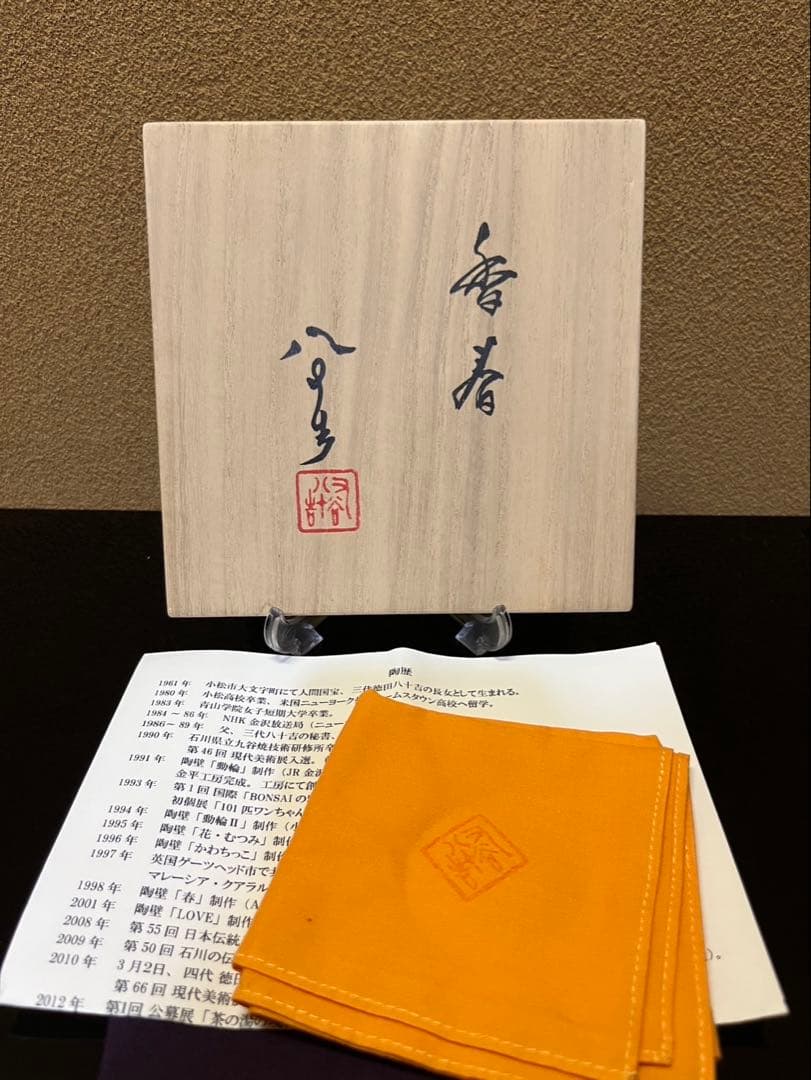 香春
八十吉
陶歴
1961年 小松市大文字町にて人間国宝、三代徳田八十吉の長女として生まれる。
1980年 小松高校卒業、米国ニューヨーク ームスタウン高校へ留学。
1983年 青山学院女子短期大学卒業。
1984~86年 NHK金沢放送局(ニュー
1986~89年 父、三代八十吉の秘書、
1990年 石川県立九谷焼技術研修所卒
第46回 現代美術展入選。
1991年 陶壁「動輪」制作(JR金沢
金平工房完成。工房にて創
1993年 第1回 国際「BONSAIの
初個展「101匹ワンちゃん
1994年 陶壁「動輪Ⅱ」制作(小
1995年 陶壁「花・むつみ」制作
1996年 陶壁「かわちっこ」制作
1997年 英国ゲーツヘッド市で
マレーシア・クアラル
1998年 陶壁「春」制作(A
2001年 陶壁「LOVE」制作
2008年 第55回 日本伝統
2009年 第50回 石川の伝
2010年 3月2日、四代 徳田
第66回 現代美術
2012年 第1回 公募展「茶の湯の
)。